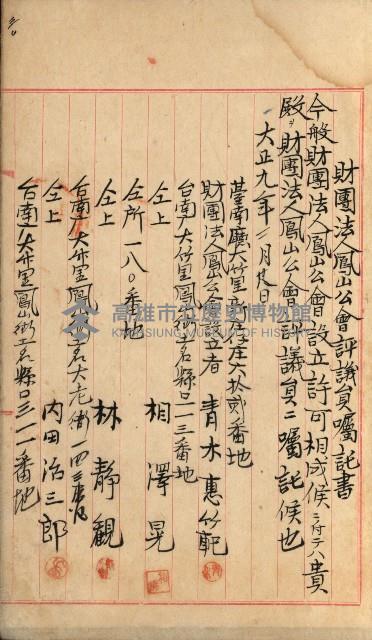 財團法人鳳山公會評議員囑託書
今般財團法人鳳山公會設立許可相成候ニ付テハ貴
殿ヲ財團法人鳳山公會評議員ニ囑託候也
大正九年二月 日
臺南廳大竹里 庄六拾貳番地
財團法人鳳山公會設立者 青木惠範
台南廳大竹里鳳山街土名縣口一三番地
仝上 相澤晃
仝所一八〇番地
仝上 林靜觀
台南廳大竹里鳳山街土名大老衙一四三番地
仝上 內田治三郎
台南廳大竹里鳳山街土名縣口三一一番地
高雄市立歷史博物館
KAOHSIUNG MUSEUM OF HISTORY